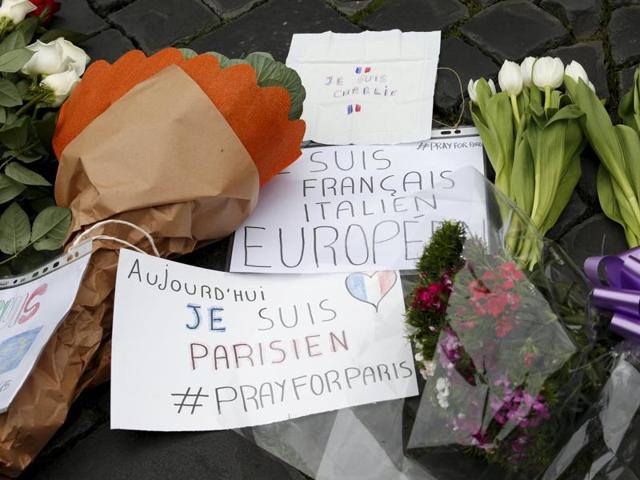 JE SUIS
CHARLIE
#PRAYFORPARIS
SUIS
FRANÇAIS
ITALIEN
EUROPÉE
AUJOURD'HUI
JE SUIS
PARISIEN
#PRAYFORPARIS